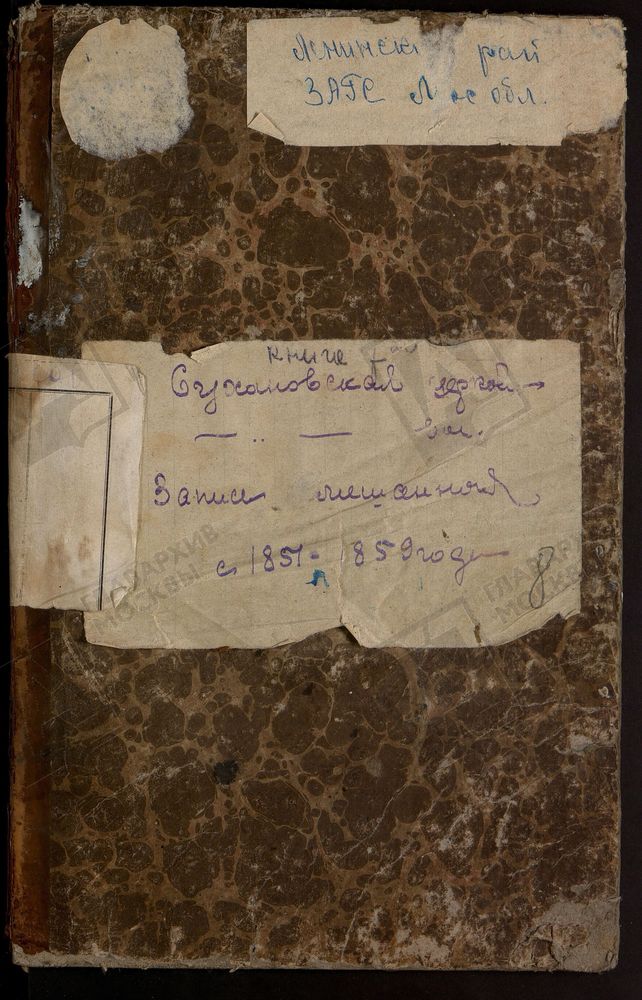 Ленинск рай
ЗАГС Мос обл.
книга
Сухановская церков
— " — вол.
Записи смешанной
с 1851 - 1859 годы
8
ГЛАВАРХИВ
МОСКВЫ
ГЛАВАРХИВ
МОСКВЫ